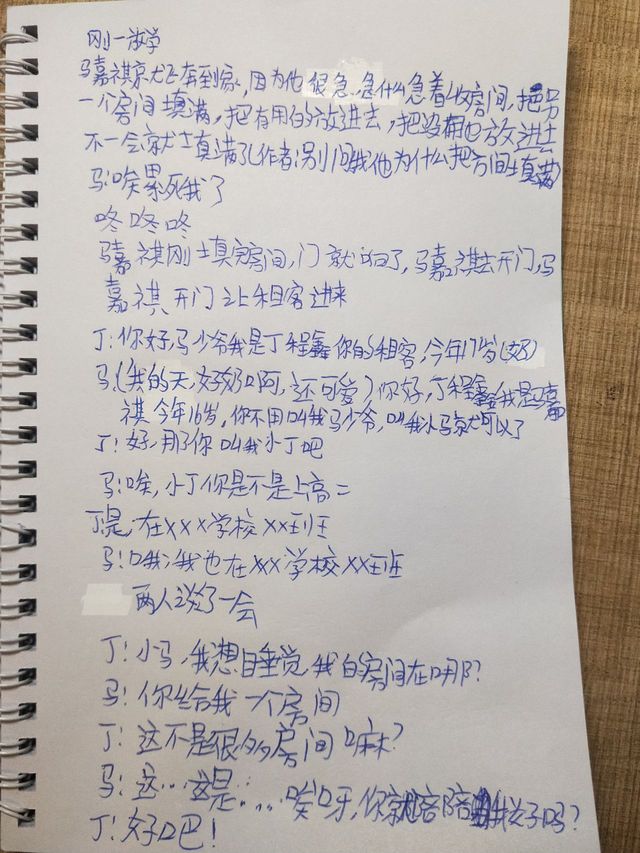 刚一放学
马嘉祺就飞奔到家,因为他很急,急什么急着收房间,把另
一个房间填满,把有用的放进去,把没用也放进去
不一会就填满了(作者:别问我他为什么把房间填满)
马:唉累死我了
咚咚咚
马嘉祺刚填完房间,门就响了,马嘉祺去开门,马
嘉祺开门让租客进来
丁:你好,马少爷我是丁程鑫你的租客,今年17岁
马(我的天,好奶啊,还可爱)你好,丁程鑫我是马嘉
祺今年16岁,你不用叫我马少爷,叫我小马就可以了
丁:好,那你叫我小丁吧
马:唉,小丁你是不是上高二
丁:是,在xxx学校xx班
马:哦,我也在xxx学校xx班
两人谈了一会
丁:小马,我想睡觉,我的房间在哪?
马:你给我一个房间
丁:这不是很多房间嘛?
马:这…这是……唉呀,你就陪我好吗?
丁:好吧!